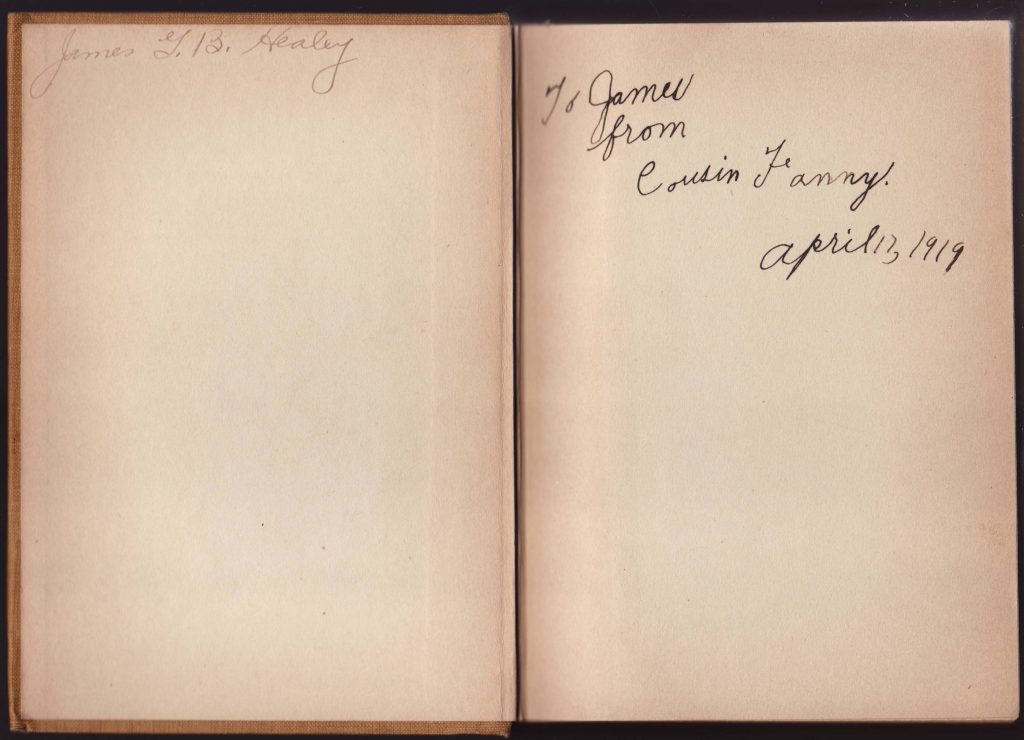 James G. B. Healey
To James
from
Cousin Fanny.
April 17, 1919